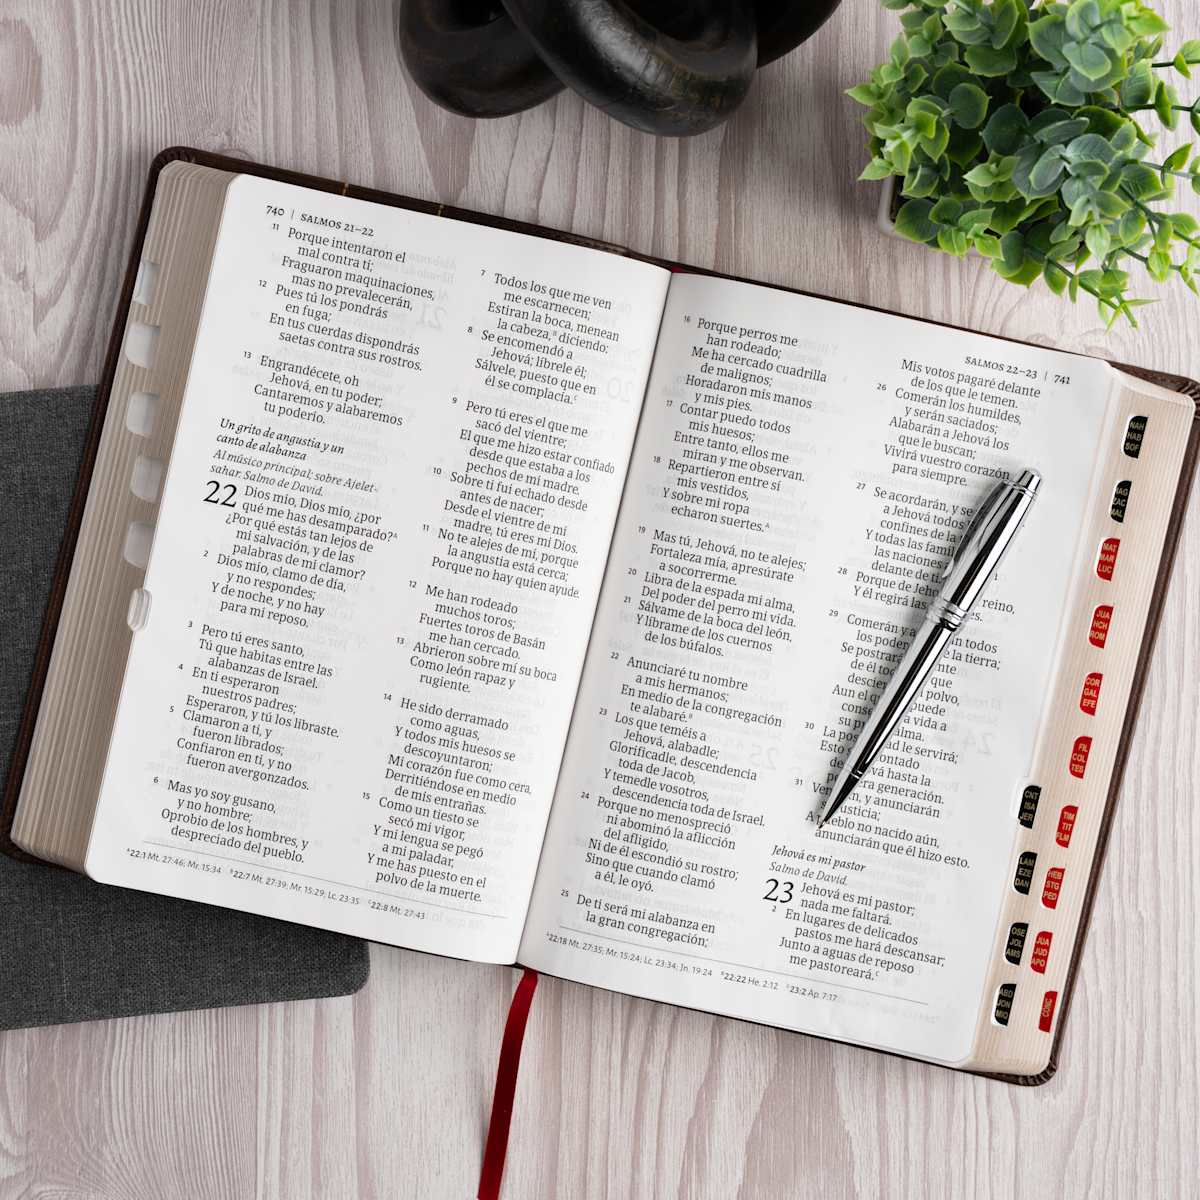 740 | SALMOS 21–22
11 Porque intentaron el
mal contra ti;
Fraguaron maquinaciones,
mas no prevalecerán,
12 Pues tú los pondrás
en fuga;
En tus cuerdas dispondrás
saetas contra sus rostros.
13 Engrandécete, oh
Jehová, en tu poder;
Cantaremos y alabaremos
tu poderío.
Un grito de angustia y un
canto de alabanza
Al músico principal; sobre Ajelet-
sahar. Salmo de David.
22 Dios mío, Dios mío, ¿por
qué me has desamparado?A
¿Por qué estás tan lejos de
mi salvación, y de las
palabras de mi clamor?
2 Dios mío, clamo de día,
y no respondes;
Y de noche, y no hay
para mí reposo.
3 Pero tú eres santo,
Tú que habitas entre las
alabanzas de Israel.
4 En ti esperaron
nuestros padres;
Esperaron, y tú los libraste.
5 Clamaron a ti, y
fueron librados;
Confiaron en ti, y no
fueron avergonzados.
6 Mas yo soy gusano,
y no hombre;
Oprobio de los hombres, y
despreciado del pueblo.
7 Todos los que me ven
me escarnecen;
Estiran la boca, menean
la cabeza,B diciendo:
8 Se encomendó a
Jehová; líbrele él;
Sálvele, puesto que en
él se complacía.C
9 Pero tú eres el que me
sacó del vientre;
El que me hizo estar confiado
desde que estaba a los
pechos de mi madre.
10 Sobre ti fui echado desde
antes de nacer;
Desde el vientre de mi
madre, tú eres mi Dios.
11 No te alejes de mí, porque
la angustia está cerca;
Porque no hay quien ayude.
12 Me han rodeado
muchos toros;
Fuertes toros de Basán
me han cercado.
13 Abrieron sobre mí su boca
Como león rapaz y
rugiente.
14 He sido derramado
como aguas,
Y todos mis huesos se
descoyuntaron;
Mi corazón fue como cera,
Derritiéndose en medio
de mis entrañas.
15 Como un tiesto se
secó mi vigor,
Y mi lengua se pegó
a mi paladar,
Y me has puesto en el
polvo de la muerte.
A22:1 Mt. 27:46; Mr. 15:34 B22:7 Mt. 27:39; Mr. 15:29; Lc. 23:35 C22:8 Mt. 27:43
SALMOS 22–23 | 741
16 Porque perros me
han rodeado;
Me ha cercado cuadrilla
de malignos;
Horadaron mis manos
y mis pies.
17 Contar puedo todos
mis huesos;
Entre tanto, ellos me
miran y me observan.
18 Repartieron entre sí
mis vestidos,
Y sobre mi ropa
echaron suertes.A
19 Mas tú, Jehová, no te alejes;
Fortaleza mía, apresúrate
a socorrerme.
20 Libra de la espada mi alma,
Del poder del perro mi vida.
21 Sálvame de la boca del león,
Y líbrame de los cuernos
de los búfalos.
22 Anunciaré tu nombre
a mis hermanos;
En medio de la congregación
te alabaré.B
23 Los que teméis a
Jehová, alabadle;
Glorificadle, descendencia
toda de Jacob,
Y temedle vosotros,
descendencia toda de Israel.
24 Porque no menospreció
ni abominó la aflicción
del afligido,
Ni de él escondió su rostro;
Sino que cuando clamó
a él, le oyó.
25 De ti será mi alabanza en
la gran congregación;
Mis votos pagaré delante
de los que le temen.
26 Comerán los humildes,
y serán saciados;
Alabarán a Jehová los
que le buscan;
Vivirá vuestro corazón
para siempre.
27 Se acordarán, y se
a Jehová todos
confines de la
Y todas las
las naciones
delante de
28 Porque de Jehová reino,
Y él regirá las
29 Comerán y todos
los la tierra;
Se postrarán
de él
polvo,
Aun el puede
a vida a
su alma.
30 La le servirá;
Esto contado
hasta la
generación.
31 y anunciarán
justicia;
A pueblo no nacido aún,
anunciarán que él hizo esto.
Jehová es mi pastor
Salmo de David.
23 Jehová es mi pastor;
nada me faltará.
2 En lugares de delicados
pastos me hará descansar;
Junto a aguas de reposo
me pastoreará.C
A22:18 Mt. 27:35; Mr. 15:24; Lc. 23:34; Jn. 19:24 B22:22 He. 2:12 C23:2 Ap. 7:17
NAH
HAB
SOF
HAG
ZAC
MAL
MAT
MAR
LUC
JUA
HCH
ROM
COR
GAL
EFE
FIL
COL
TES
CNT
ISA
JER
TIM
TIT
FLM
LAM
EZE
DAN
HEB
STG
PED
OSE
JOL
AMS
JUA
JUD
APO
ABD
JON
MIQ
CONC